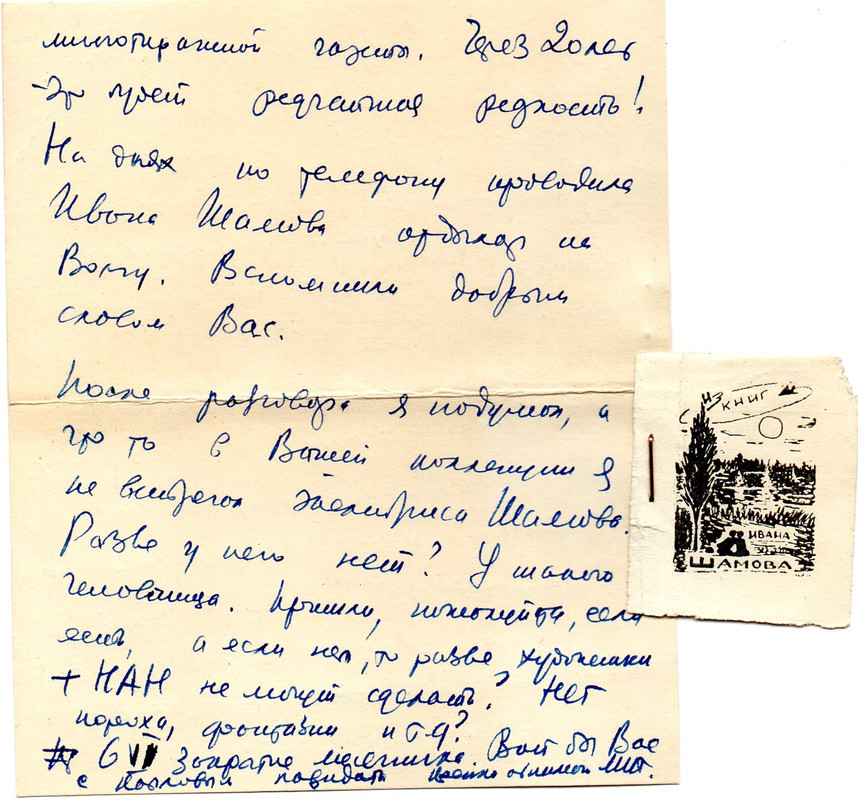 многотиражной газеты. Через 20 лет
– Это будет редчайшая редкость!
На днях по телефону проводила
Ивана Шамова отдыхать на
Волгу. Вспомнили добрым
словом Вас.
После разговора я подумал, а
что то в Вашей коллекции я
не встречал Экслибриса Шамова.
Разве у него нет? У такого
человечища. Пришли, пожалуйста, если
есть, а если нет, то разве художники
+ НАН не могут сделать? Нет
пороха, фантазии и т.д?
6 VII Закрытие месячника. Вот бы Вас
с повидать
ИЗ КНИГ
ИВАНА
ШАМОВА